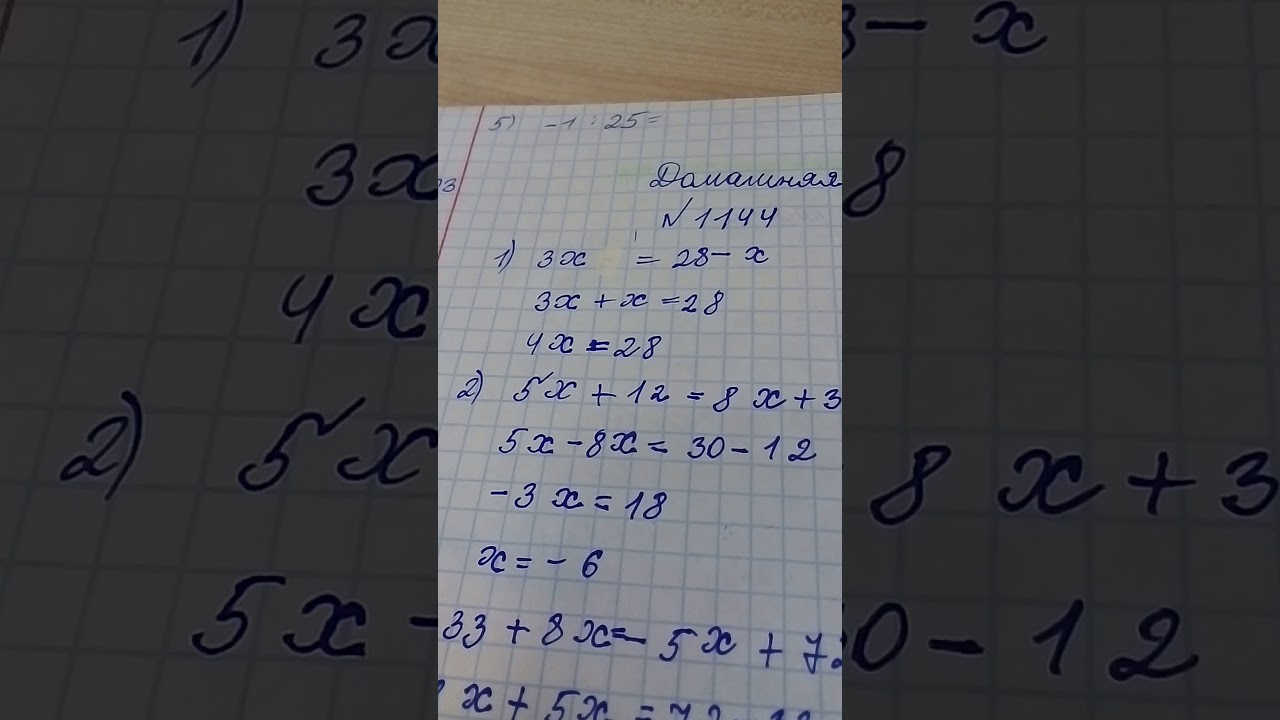 5) -1 : 25=
Домашняя
№1144
1) 3x = 28-x
3x + x =28
4x = 28
2) 5x + 12 = 8x + 3
5x - 8x = 30 - 12
-3x = 18
x = - 6
33 + 8x = - 5x + 7
x + 5x = 72